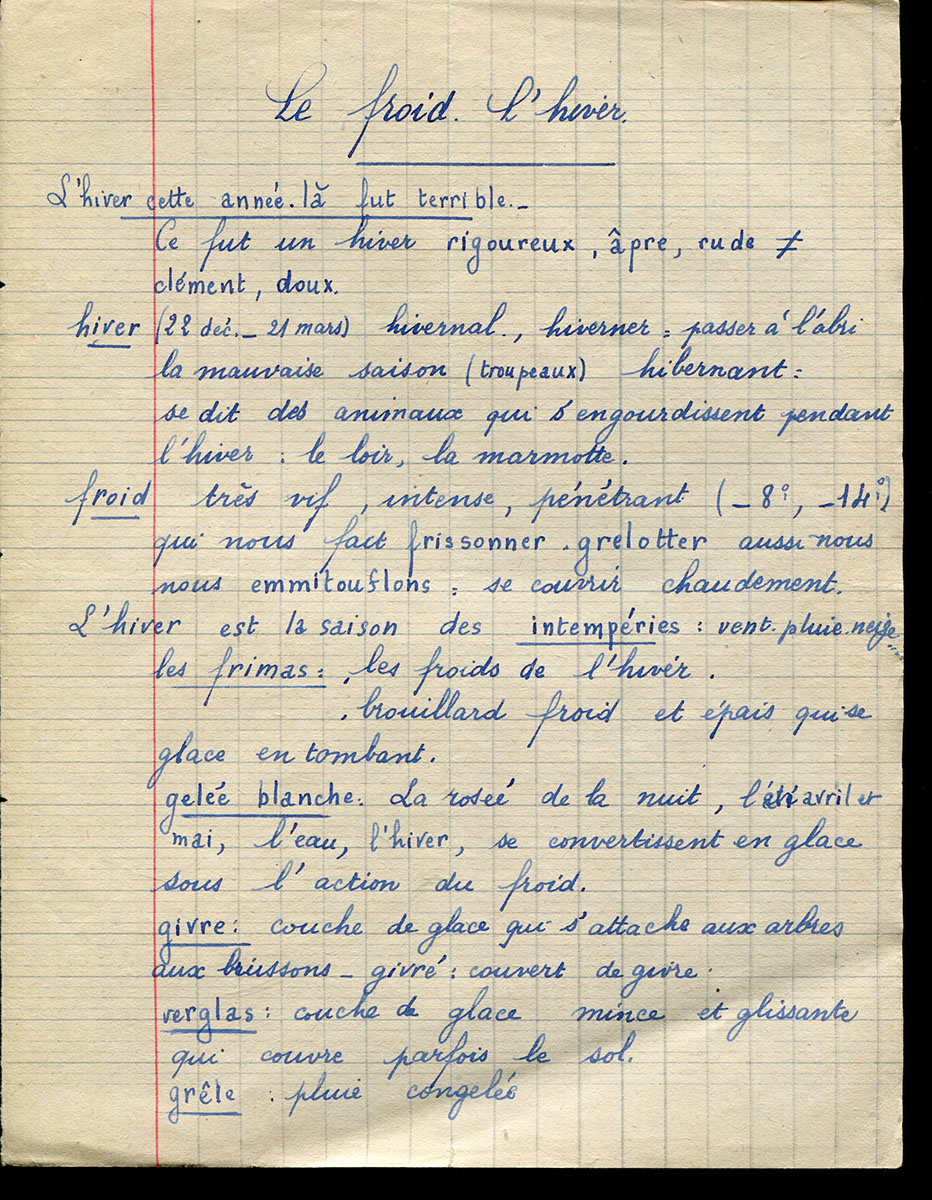 Le froid. L'hiver.
L'hiver cette année.là fut terrible._
Ce fut un hiver rigoureux, âpre, rude ≠
clément, doux.
hiver (22 déc._ 21 mars) hivernal., hiverner = passer à l'abri
la mauvaise saison (troupeaux) hibernant =
se dit des animaux qui s'engourdissent pendant
l'hiver : le loir, la marmotte.
froid très vif, intense, pénétrant (_8°, _14°)
qui nous fait frissonner . grelotter aussi nous
nous emmitouflons = se couvrir chaudement.
L'hiver est la saison des intempéries : vent. pluie. neige...
les frimas = . les froids de l'hiver .
. brouillard froid et épais qui se
glace en tombant.
gelée blanche : La rosée de la nuit, avril et
mai, l'eau, l'hiver, se convertissent en glace
sous l'action du froid.
givre : couche de glace qui s'attache aux arbres
aux buissons _ givré : couvert de givre.
verglas : couche de glace mince et glissante
qui couvre parfois le sol.
grêle : pluie congelée